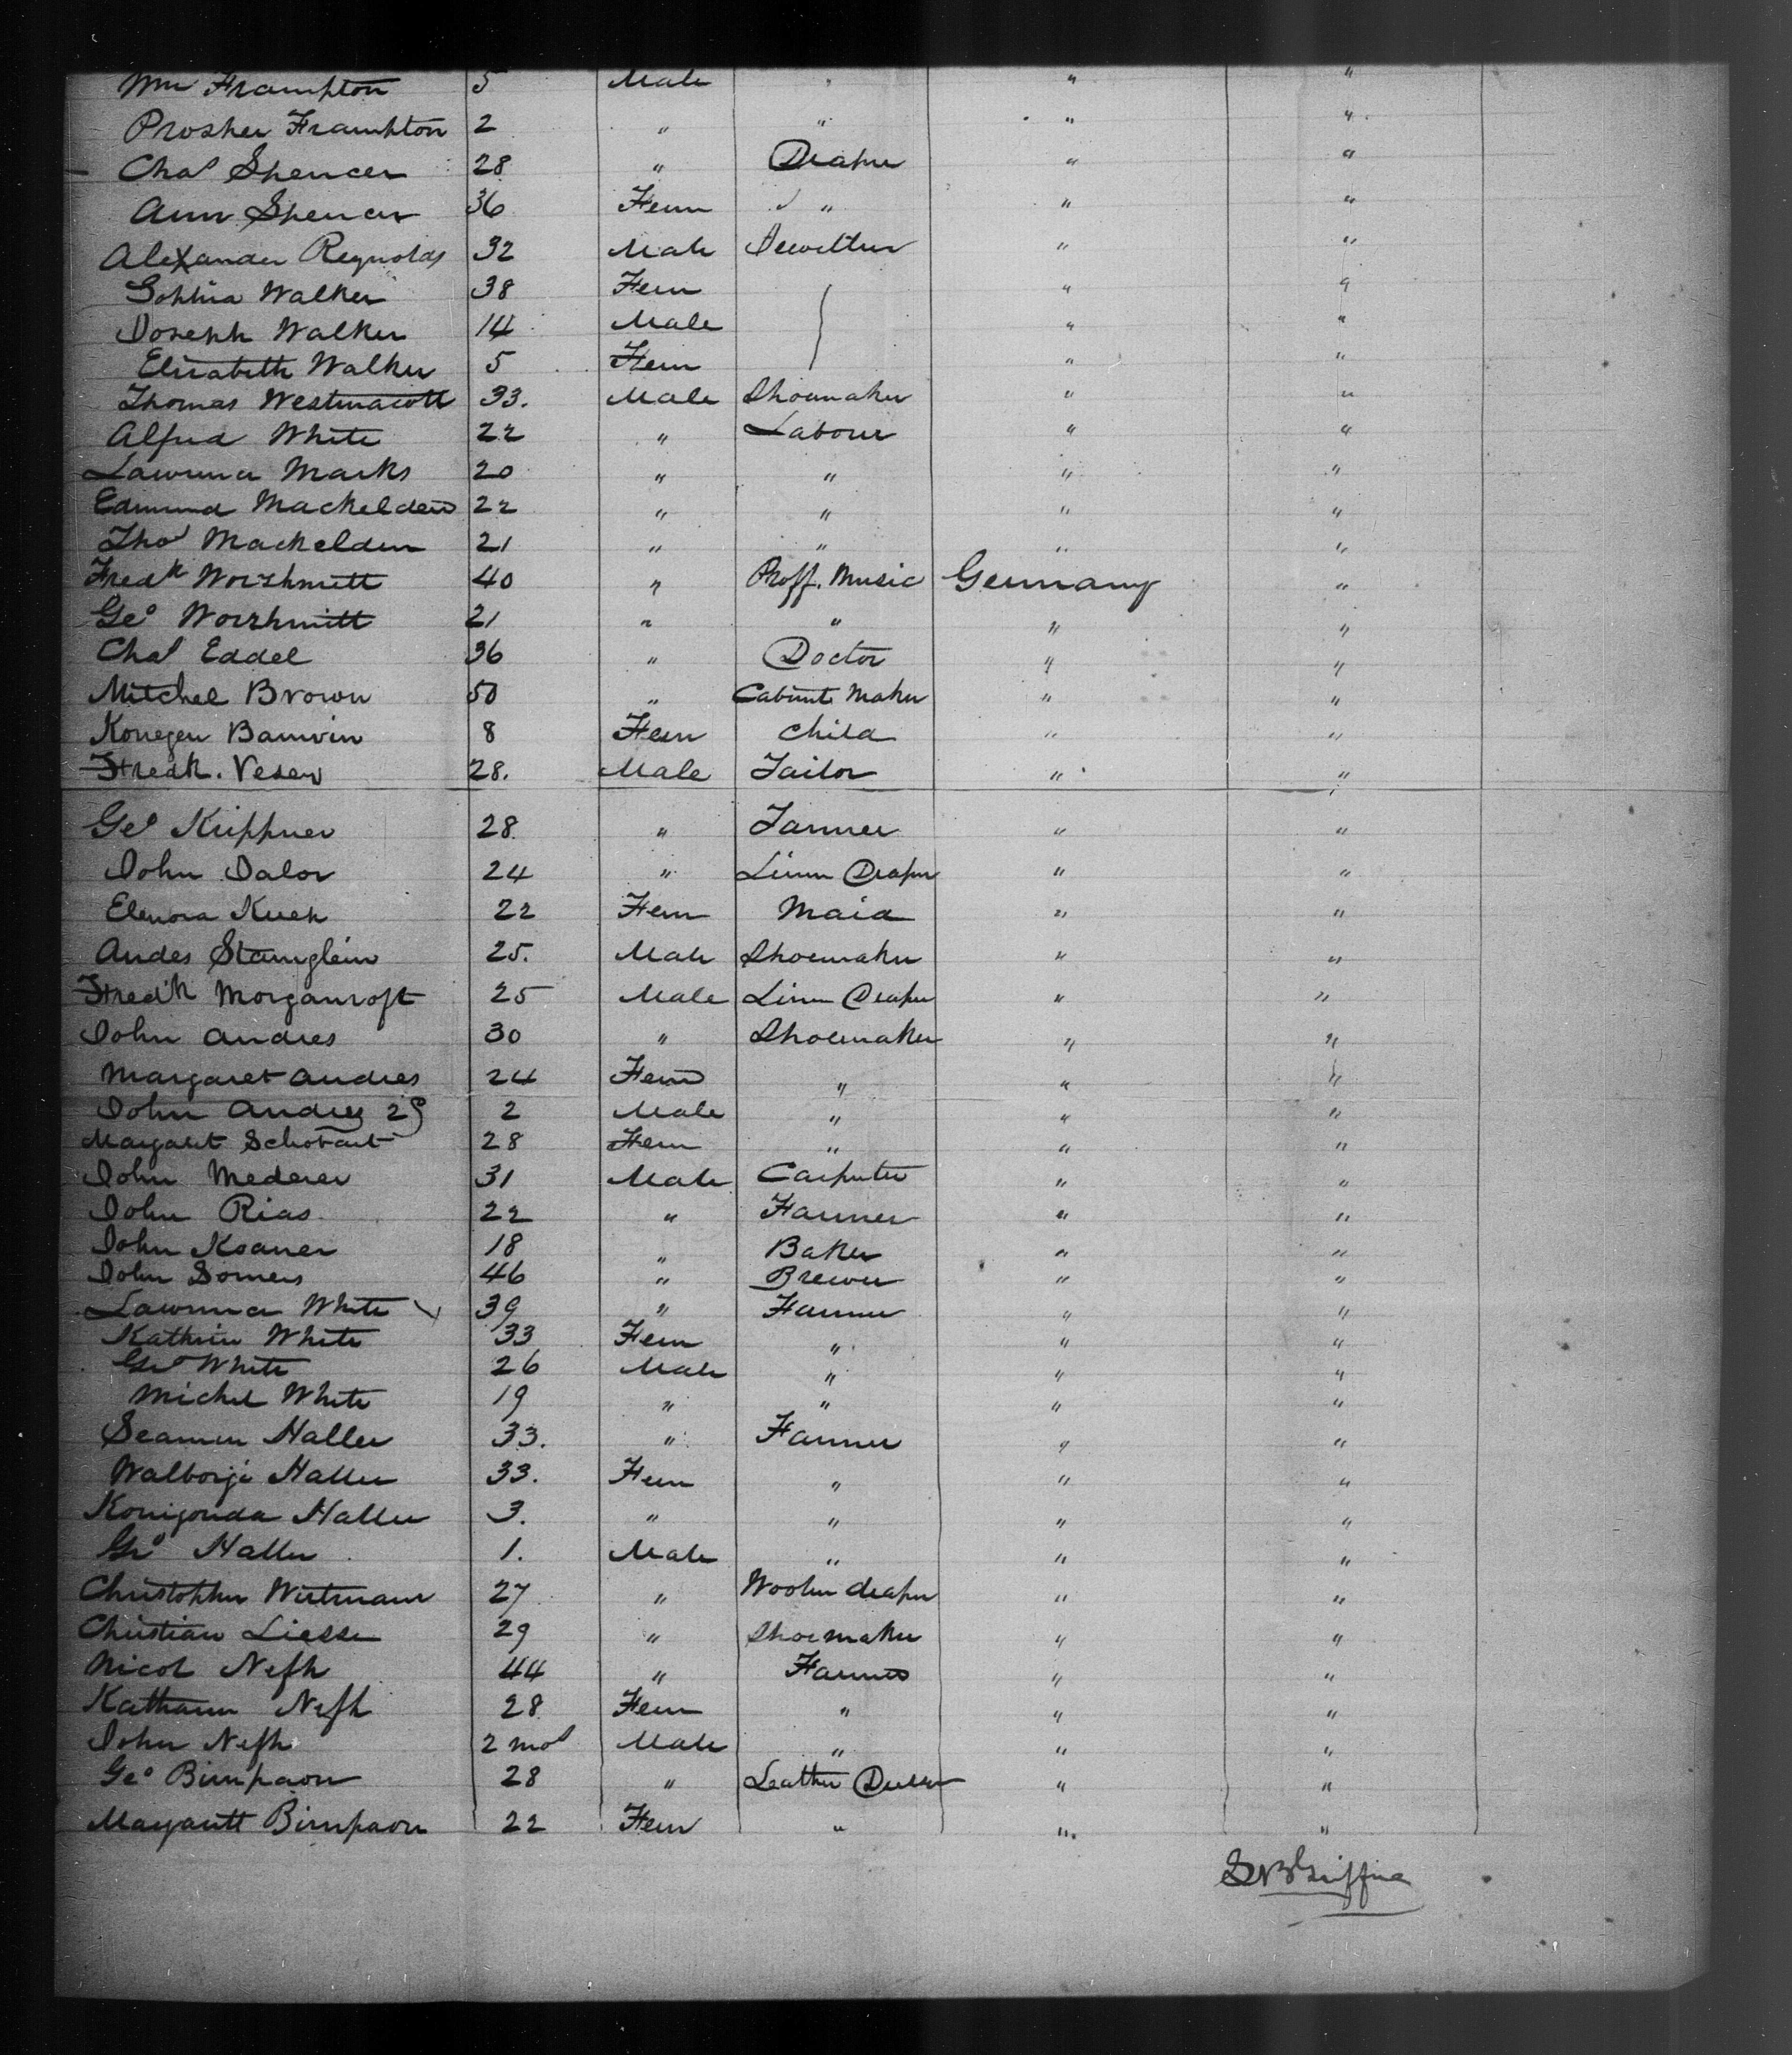 Wm Frampton 5 Male " " "
Prosper Frampton 2 " " " "
Chas Spencer 28 " Draper " "
Ann Spencer 36 Fem " " "
Alexander Reynolds 32 Male " "
Sophia Walker 38 Fem " "
Joseph Walker 14 Male " "
Elizabeth Walker 5 Fem " "
Thomas Westmacott 33. Male Shoemaker " "
Alfred White 22 " Labour " "
Lawrence Marks 20 " " " "
Edmund Mackelden 22 " " " "
Thos Mackelden 21 " " " "
Fredk Worshmitt 40 " Proff. Music Germany "
Geo Worshmitt 21 " " " "
Chas Eddel 36 " Doctor " "
Mitchel Brown 50 " Cabinte Maker " "
Konegen Bamvin 8 Fem Child " "
Fredk. Veser 28. Male Tailor " "
Geo Krippner 28. " Farmer " "
John Dalor 24 " Linen Draper " "
Elenora Kuch 22 Fem Maid " "
Andes Stamglein 25. Male Shoemaker " "
Fred'k Morganroft 25 Male Linen Draper " "
John Andres 30 " Shoemaker " "
Margaret Andres 24 Fem " " "
John Andres 2d 2 Male " " "
Margaret 28 Fem " " "
John Mederer 31 Male Carpenter " "
John Rias 22 " Farmer " "
John Koaner 18 " Baker " "
John Somers 46 " Brewer " "
Lawrence White 39 " Farmer " "
Kathrin White 33 Fem " " "
Geo White 26 Male " " "
Michel White 19 " " " "
Seamen Haller 33. " Farmer " "
Walborja Haller 33. Fem " " "
Konigonda Haller 3. " " " "
Geo Haller 1. Male " " "
Christopher Wittmann 27 " Woolen draper " "
Christian Liesse 29 " Shoemaker " "
Nicol Neft 44 " Farmer " "
Katharin Neft 28 Fem " " "
John Neft 2 mos Male " " "
Geo Bimpaon 28 " Leather Dresser " "
Margarett Bimpaon 22 Fem " " "
Griffin